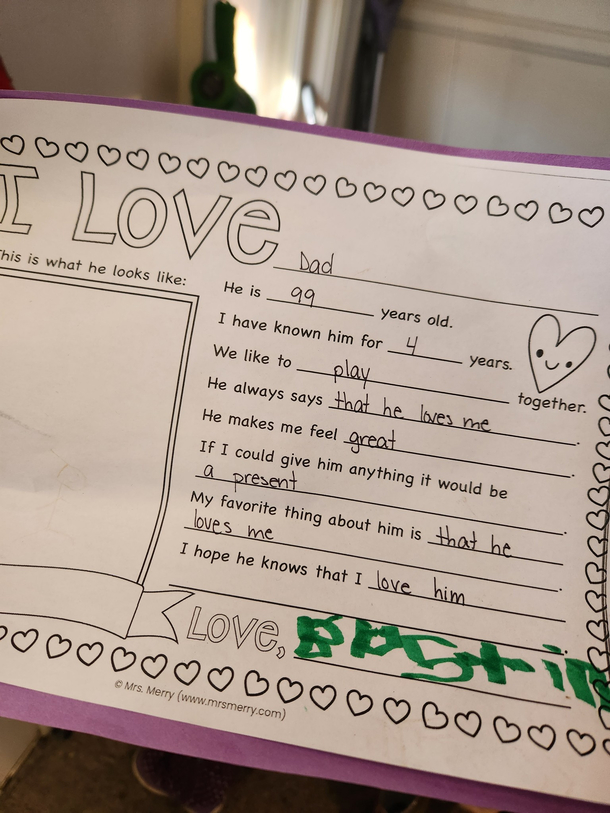 I LOVE Dad
This is what he looks like:
He is 99 years old.
I have known him for 4 years.
We like to play together.
He always says that he loves me.
He makes me feel great.
If I could give him anything it would be
a present.
My favorite thing about him is that he
loves me.
I hope he knows that I love him
LOVE,
© Mrs. Merry (www.mrsmerry.com)